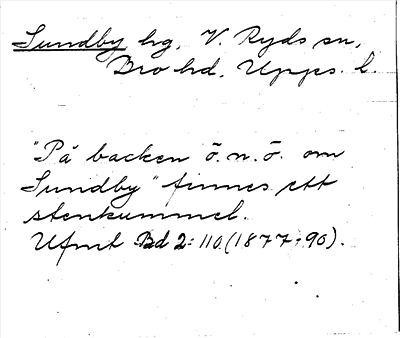 Sundby hg, V. Ryds sn,
Bro hd, Upps. l.
"På backen ö.n.ö. om
Sundby" finnes ett
stenkummel.
Ufmt Bd 2: 110. (1877-90).